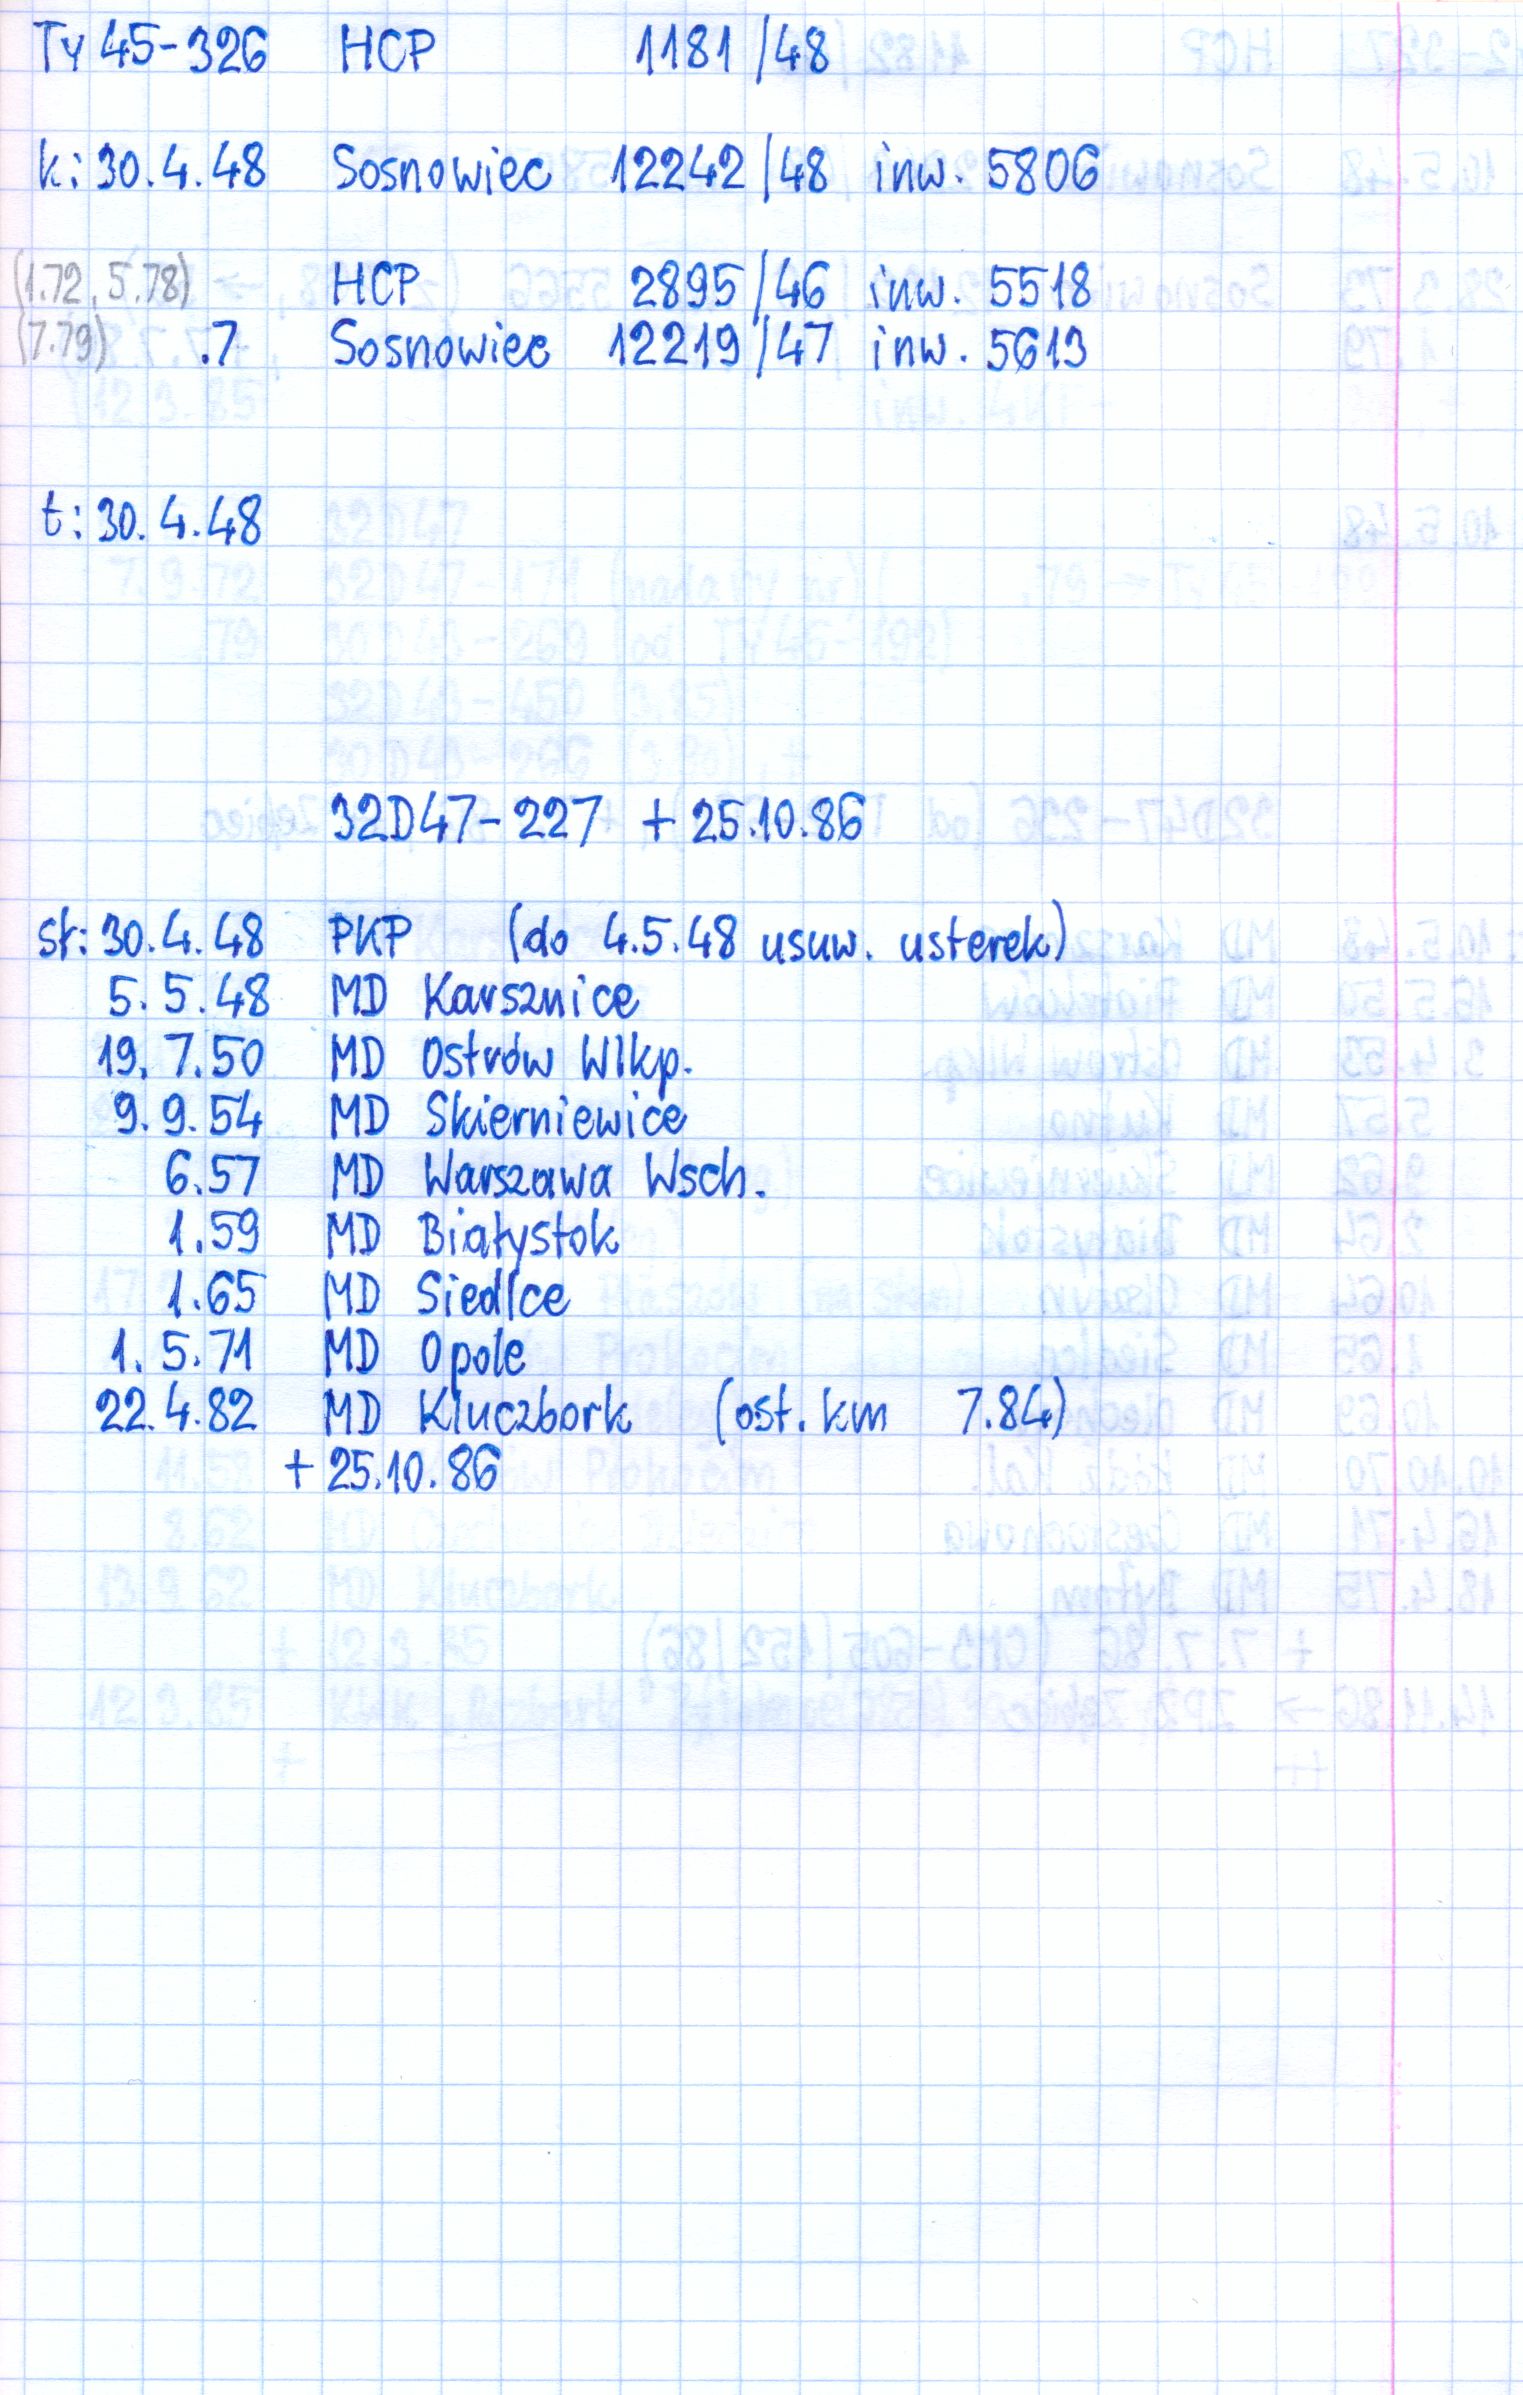 Ty 45-326 HCP 1181/48
k: 30.4.48 Sosnowiec 12242/48 inw. 5806
(1.72, 5.78) HCP 2895/46 inw. 5518
(7.79) .7 Sosnowiec 12219/47 inw. 5613
t: 30.4.48
32D47-227 + 25.10.86
st: 30.4.48 PKP (do 4.5.48 usuw. usterek)
5.5.48 MD Karsznice
19.7.50 MD Ostrów Wlkp.
9.9.54 MD Skierniewice
6.57 MD Warszawa Wsch.
1.59 MD Białystok
1.65 MD Siedlce
1.5.71 MD Opole
22.4.82 MD Kluczbork (ost. km 7.84)
+ 25.10.86